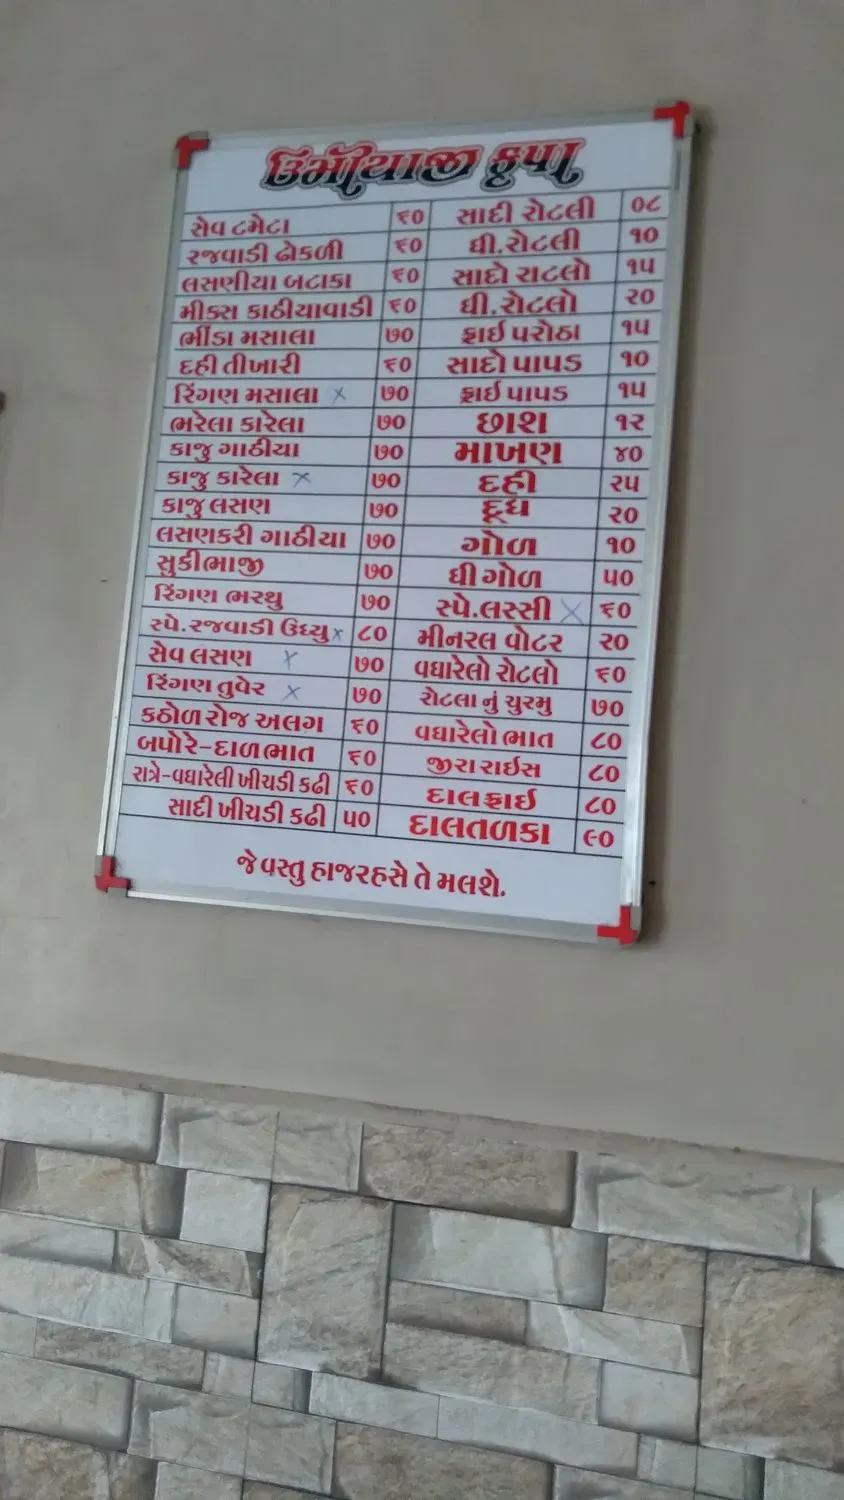 ઉમીયાજી કૃપા
સેવ ટમેટા ૬૦ સાદી રોટલી ૦૮
રજવાડી ઢોકળી ૬૦ ઘી.રોટલી ૧૦
લસણીયા બટાકા ૬૦ સાદો રાટલો ૧૫
મીક્સ કાઠીયાવાડી ૬૦ ઘી.રોટલો ૨૦
ભીંડા મસાલા ૭૦ ફ્રાઈ પરોઠા ૧૫
દહી તીખારી ૬૦ સાદો પાપડ ૧૦
રિંગણ મસાલા x ૭૦ ફ્રાઈ પાપડ ૧૫
ભરેલા કારેલા ૭૦ છાશ ૧૨
કાજુ ગાઠીયા ૭૦ માખણ ૪૦
કાજુ કારેલા x ૭૦ દહી ૨૫
કાજુ લસણ ૭૦ દૂધ ૨૦
લસણકરી ગાઠીયા ૭૦ ગોળ ૧૦
સુકીભાજી ૭૦ ઘી ગોળ ૫૦
રિંગણ ભરથુ ૭૦ સ્પે.લસ્સી x ૬૦
સ્પે.રજવાડી ઉંધ્યુ x ૮૦ મીનરલ વોટર ૨૦
સેવ લસણ x ૭૦ વઘારેલો રોટલો ૬૦
રિંગણ તુવેર x ૭૦ રોટલા નું ચુરમુ ૭૦
કઠોળ રોજ અલગ ૬૦ વઘારેલો ભાત ૮૦
બપોરે-દાળભાત ૬૦ જીરા રાઇસ ૮૦
રાત્રે-વઘારેલી ખીચડી કઢી ૬૦ દાલફ્રાઇ ૮૦
સાદી ખીચડી કઢી ૫૦ દાલતળકા ૯૦
જે વસ્તુ હાજરહસે તે મલશે.